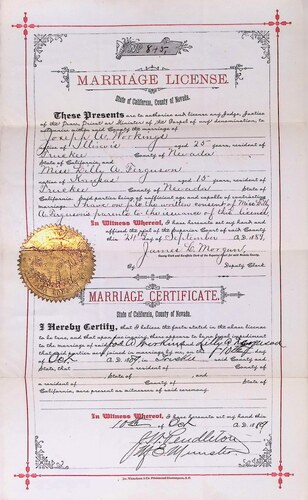 MARRIAGE LICENSE.
State of California, County of Nevada.
These Presents are to authorize and license any Judge, Justice
of the Peace, Priest or Minister of the Gospel of any denomination, to
solemnize within said County the marriage of
Joseph A. Workings
native of Illinois aged 25 years, resident of
Truckee County of Nevada
State of California and
Miss Lilly A. Ferguson
native of Kansas aged 15 years, resident of
Truckee County of Nevada
State of California, said parties being of sufficient age and capable of contracting
marriage. I have now the written consent of Miss Lilly
A Fergusons parents to the issuance of this license
In Witness Whereof, I have hereunto set my hand and
affixed the seal of the Superior Court of said County
this day of September A.D. 1889
James D. Morgan,
County Clerk and Ex-officio Clerk of the Superior Court for said Nevada County.
By Deputy Clerk
MARRIAGE CERTIFICATE.
State of California, County of Nevada.
I Hereby Certify, that I believe the facts stated in the above license
to be true, and that upon due inquiry, there appears to be no legal impediment
to the marriage of said and Lilly A Ferguson
that said parties were joined in marriage by me, on the 10th day
of Oct A.D. 1889 in Truckee said County and
State; that a resident of County of
State of and
a resident of County of State of
California, were present as witnesses of said ceremony.
In Witness Whereof, I have hereunto set my hand this
10th day of Oct A.D. 1889
Pendleton
M E Minister